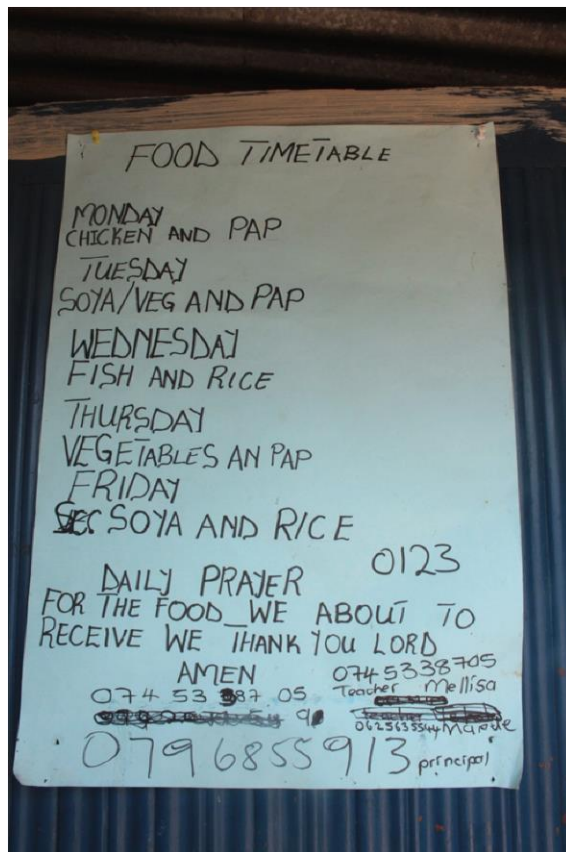 FOOD TIMETABLE
MONDAY
CHICKEN AND PAP
TUESDAY
SOYA/VEG AND PAP
WEDNESDAY
FISH AND RICE
THURSDAY
VEGETABLES AN PAP
FRIDAY
SOYA AND RICE
0123
DAILY PRAYER
FOR THE FOOD_WE ABOUT TO
RECEIVE WE THANK YOU LORD
AMEN
0745338705
Teacher Mellisa
074 53 387 05
0625635544
0796855913 principal